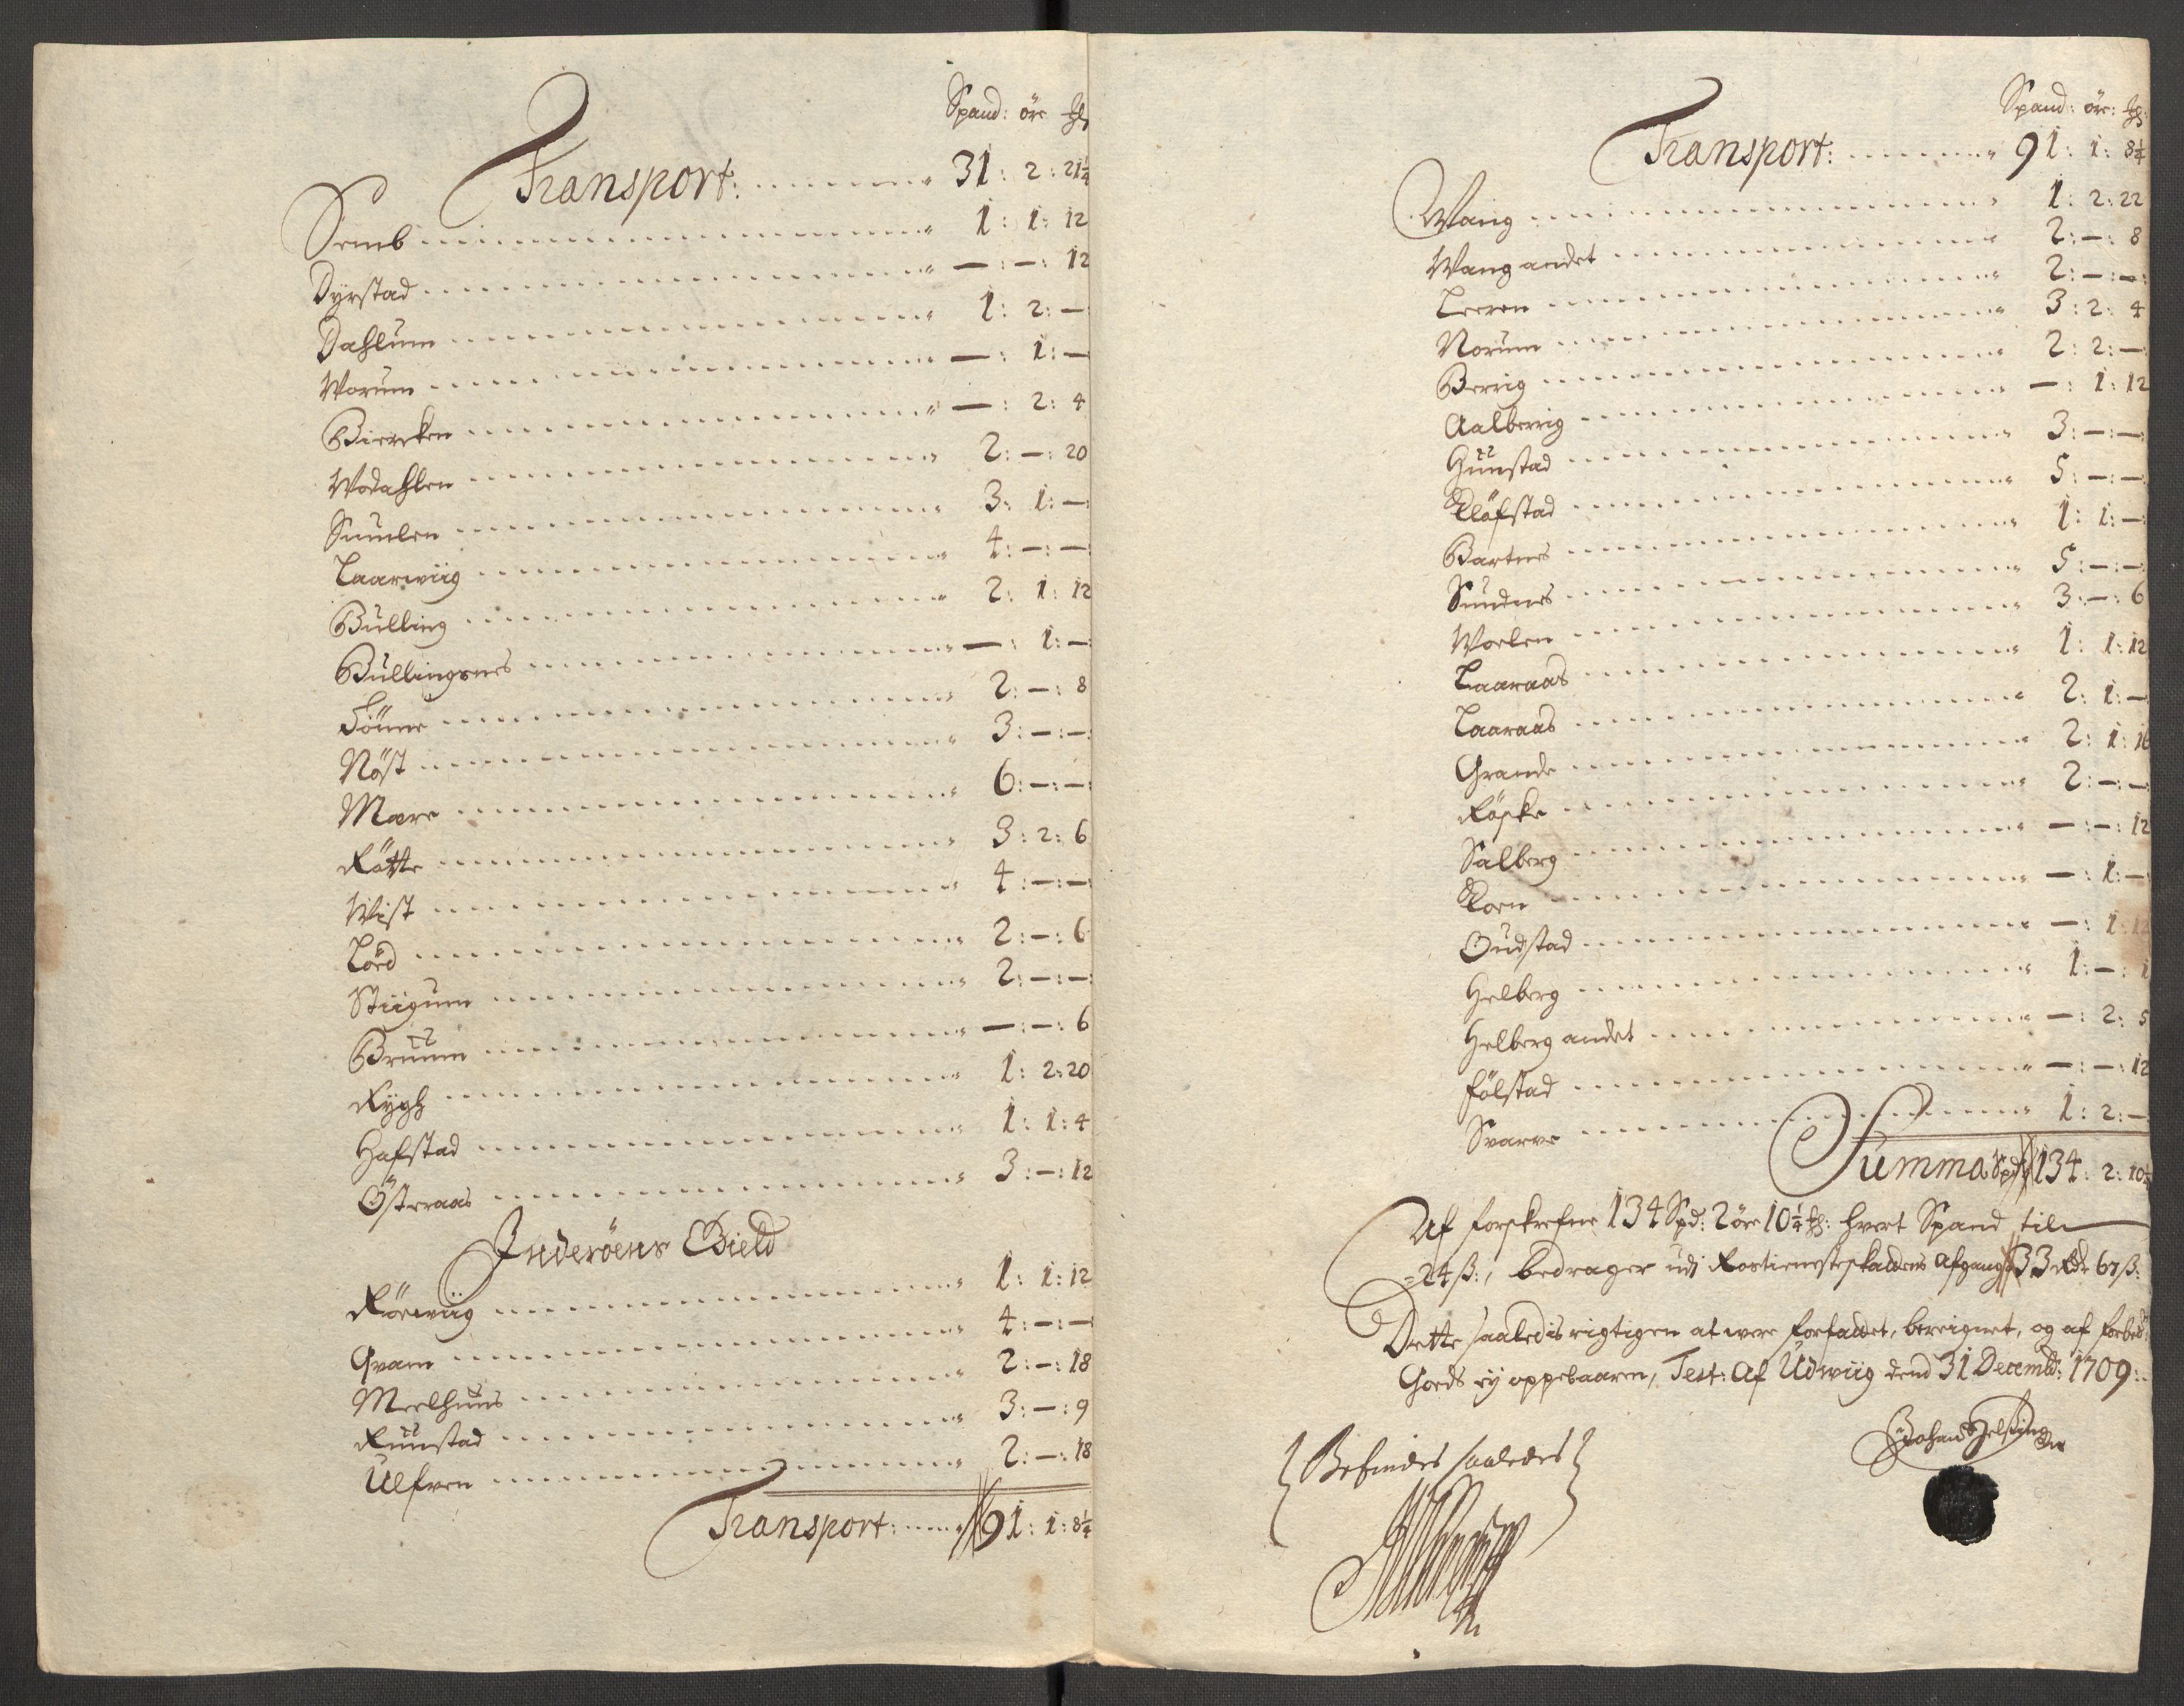 Spand: öre
Transport: 31: 2: 21¼
Semb 1: 1: 12
Dyrstad —: —: 12
Dahlum 1: 2: —
Worum —: 1: —
Biercken —: 2: 4
Wodahlen 2: —: 20
Sundlen 3: 1: —
Laarwiig 4: —: —
Bülling 2: 1: 12
Büllingsnes —: 1: —
2: —: 8
Nöst 3: —: —
Mære 6: —: —
Røtte 3: 2: 6
Wist 4: —: —
Lörd 2: —: 6
Stiigum 2: —: —
Bruum —: —: 6
Rygh 1: 2: 20
Hafstad 1: 1: 4
Österaas 3: —: 12
Inderöens Gield
Röewiig 1: 1: 12
Qvam 4: —: —
Meelhuus 2: —: 18
Ruustad 3: —: 9
Ulfven 2: —: 18
Transport: 91: 1: 8¼
Spand: öre:
Transport: 91: 1: 8¼
Wang 1: 2: 22
Wang andet 2: —: 8
Leeren 2: —: —
Norum 3: 2: 4
Berrig 2: 2: —
Aalberrig —: 1: 12
Guustad 3: —: —
Kløfstad 5: —: —
Bartnes 1: 1: —
Sundnes 5: —: —
Woelen 3: —: 6
Laaraas 1: 1: 12
Laaraas 2: 1: —
Grande 2: 1: 16
Røske 2: —: —
Salberg —: —: 12
Korn —: 1: —
Oudstad —: 1: 12
Helberg 1: —: 1
Helberg andet —: 2: 5
Følstad —: —: 12
Svarve 1: 2: —
Summa Spd 134: 2: 10¼
Af forskrefne 134 Spd: 2 öre 10¼ hvert Spand til
24 ß:, bedrager udj Rostienesteskattens Afgang 33 Rdr 67 ß:
Dette saaledis rigtigen at were forfattet, bereignet, og af
Gods ej oppebaaren, Test: Af Udwiig dend 31 Decembr: 1709:
Johan
Befindes saaledes